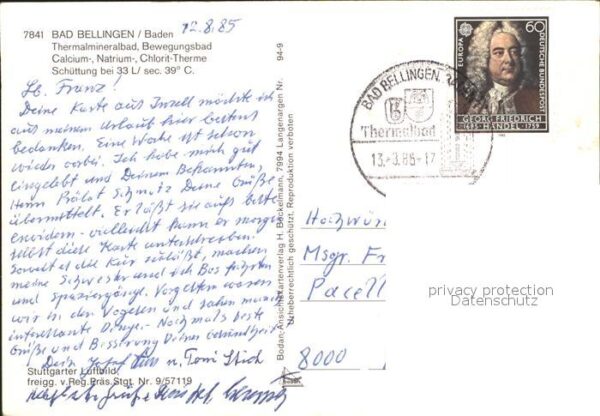 7841 BAD BELLINGEN / Baden
Thermalmineralbad, Bewegungsbad
Calcium-, Natrium-, Chlorit-Therme
Schüttung bei 33 L/ sec. 39° C.
12.8.85
94-9
Lb. Franz!
Deine Karte aus Inzell möchte ich
aus meinem Urlaub hier bestens
bedanken. Eine Woche ist schon
wieder vorbei. Ich habe mich gut
eingelebt und Deinem Bekannten,
Herrn Prälat Schmutz Deine Grüße
übermittelt. Er läßt sie aufs beste
erwidern - vielleicht kann er morgen
selbst diese Karte unterschreiben.
Soweit es die Kur zuläßt, machen
meine Schwester und ich Bus fahrten
und Spaziergänge. Vorgestern waren
wir in den Vogesen und sahen manch
interessante Dinge. - Nochmals beste
Grüße und Besserung Deiner Gesundheit
Dein Josef u. Toni Stich
Stuttgarter Luftbild
freigg. v. Reg. Präs. Stgt. Nr. 9/57119
Bodan-Ansichtskartenverlag H. Böckelmann, 7994 Langenargen Nr.
Urheberrechtlich geschützt, Reproduktion verboten
EUROPA
60
DEUTSCHE BUNDESPOST
GEORG FRIEDRICH
1685 HÄNDEL 1759
BAD BELLINGEN
Thermalbad
13.-3.85-17
Hochwür
Msgr. Fr
Pacell
8000
privacy protection
Datenschutz